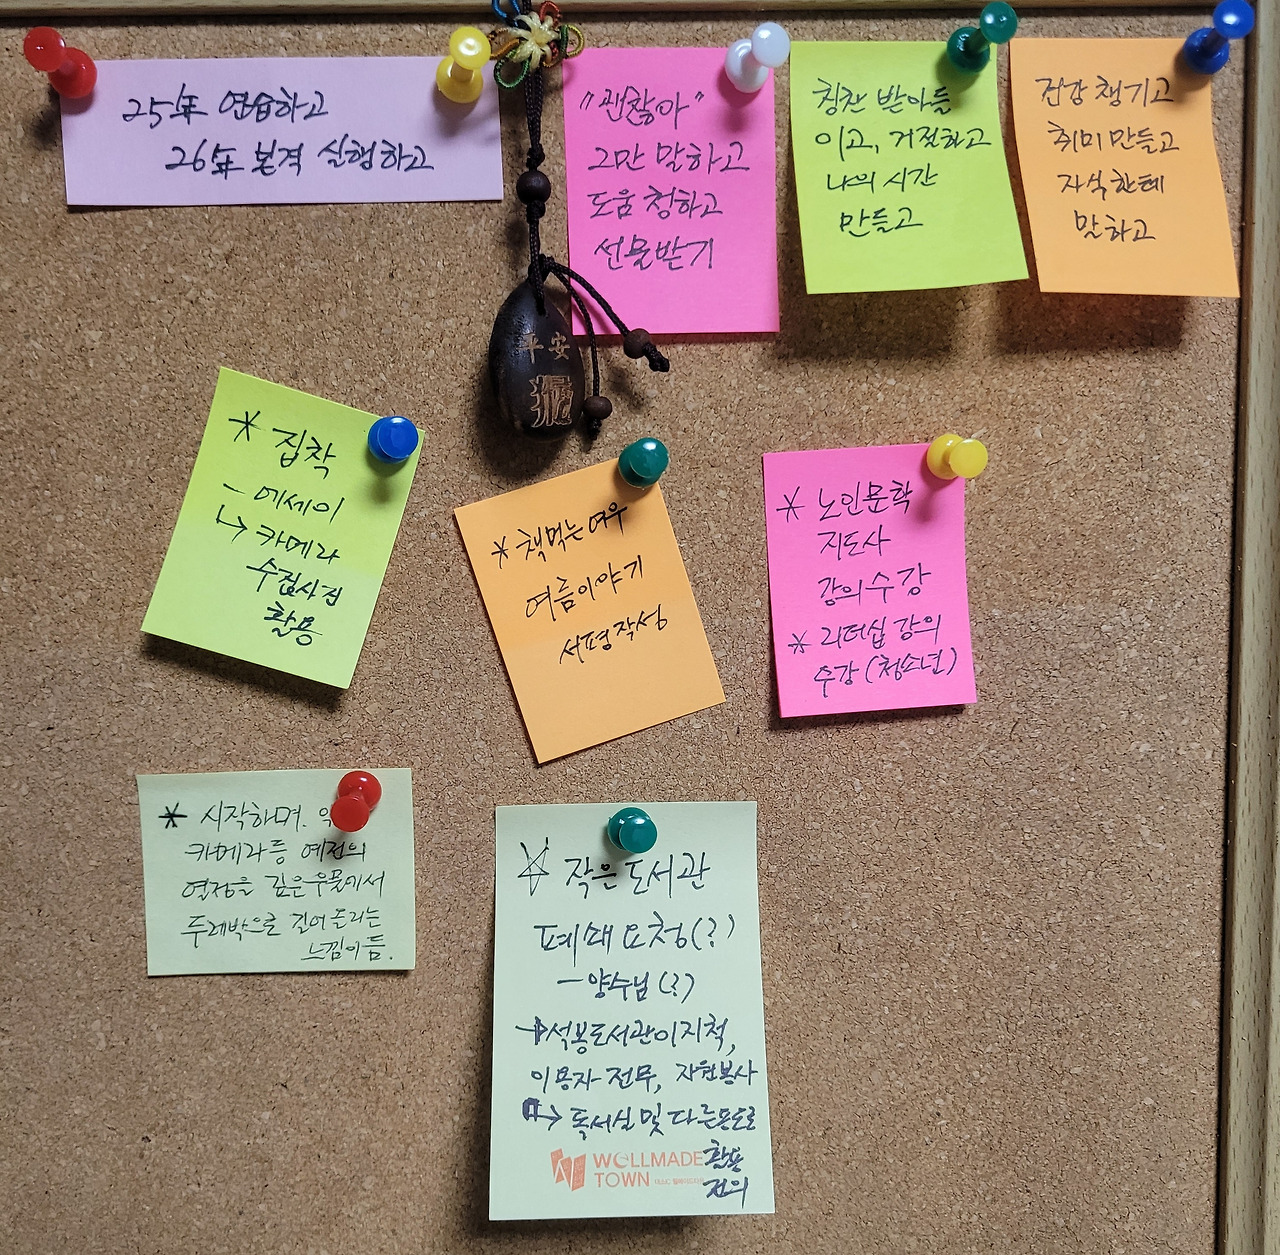 25年 연습하고
26年 본격 실행하고
"괜찮아"
그만 말하고
도움 청하고
선물받기
칭찬 받아들
이고, 거절하고
나의 시간
만들고
건강 챙기고
취미 만들고
자식한테
말하고
平安
* 집착
- 에세이
↳ 카메라
수집사진
활용
* 책먹는 여우
여름이야기
서평작성
* 노인문학
지도사
강의수강
* 리더십 강의
수강 (청소년)
* 시작하며.
카메라등 예전의
열정을 깊은우물에서
두레박으로 길어 올리는
느낌이 듬.
☆ 작은도서관
폐쇄요청(?)
- 양수님(?)
→ 석봉도서관이지척,
이용자 전무, 자원봉사
↳ 독서실 및 다른용도로
활용
건의
WELLMADE
TOWN